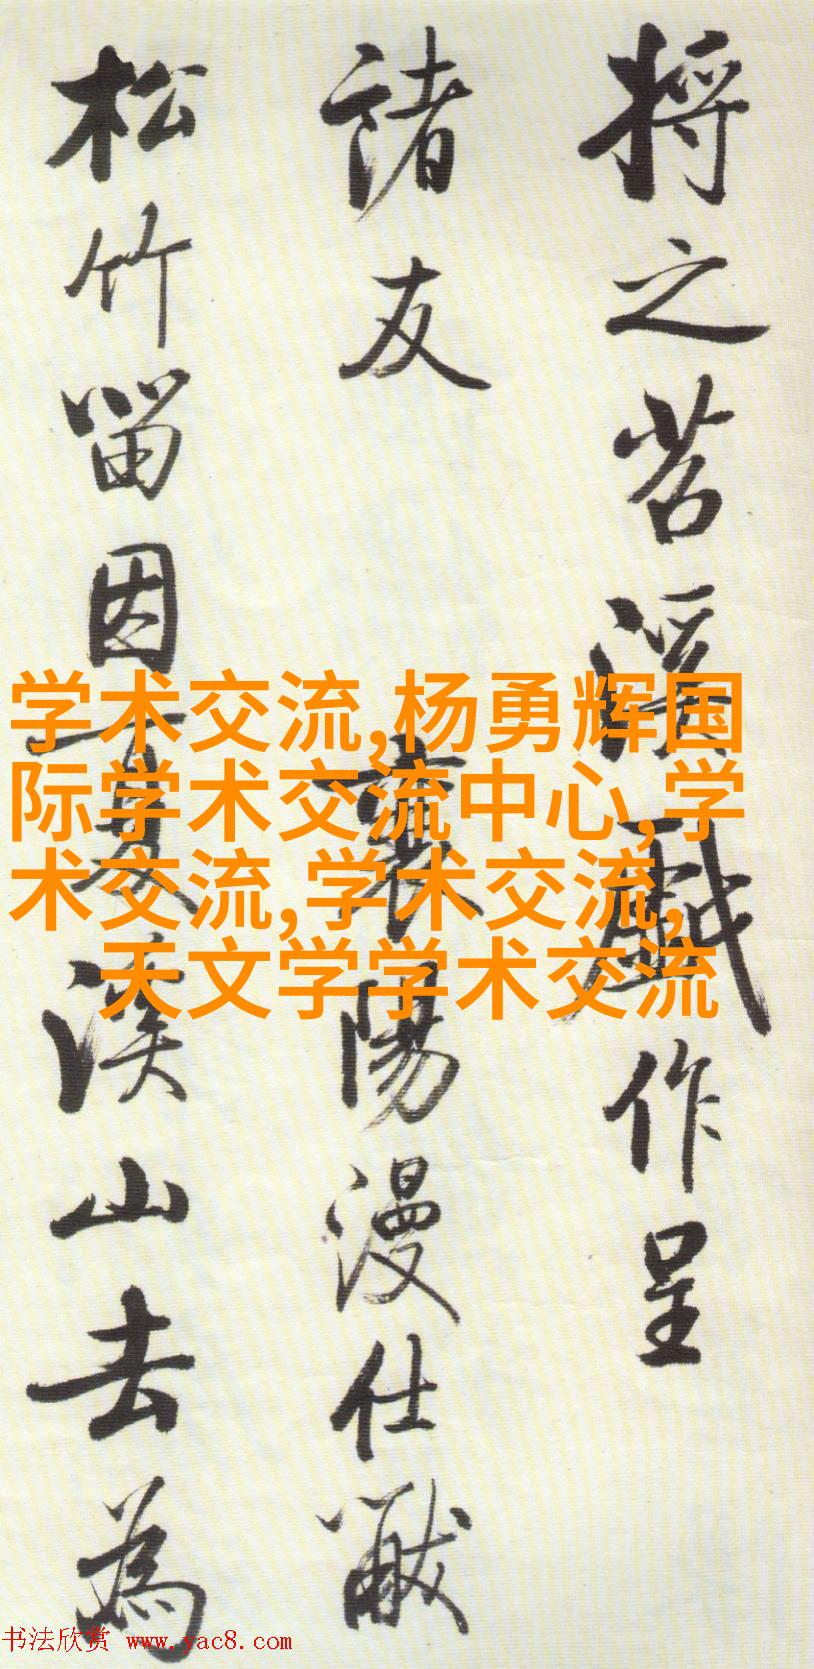 将之苕溪戲作呈
諸友 襄陽漫仕黻
松竹留因夏溪山去為
学术交流,杨勇辉国
际学术交流中心,学
术交流,学术交流,
天文学学术交流
书法欣赏 www.yac8.com